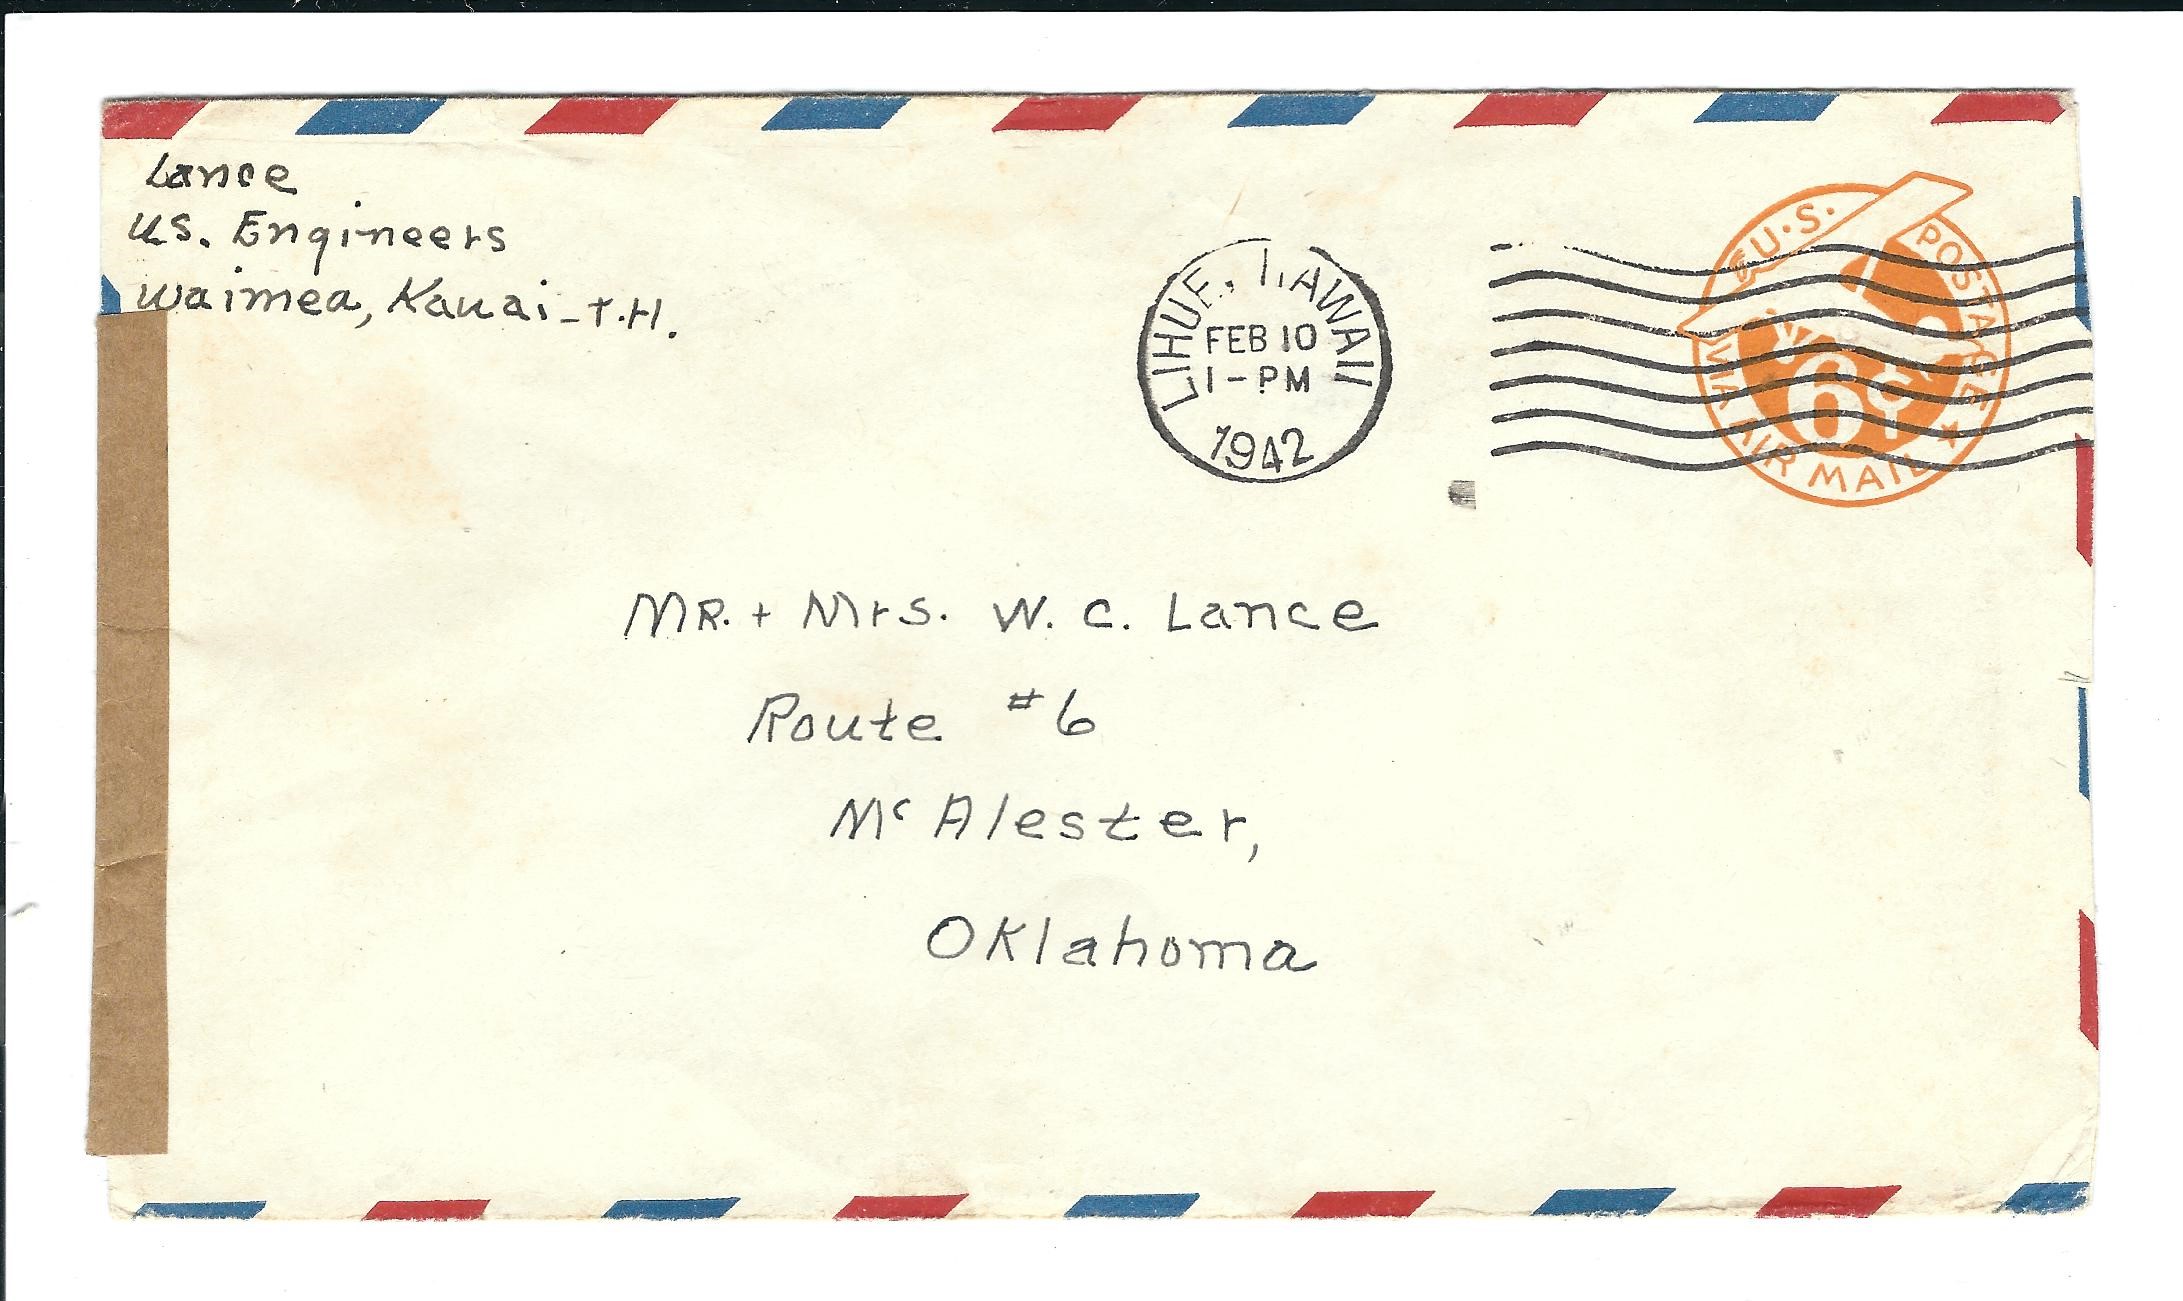 Lance
U.S. Engineers
Waimea, Kauai - T.H.
LIHUE, HAWAII
FEB 10
1 - PM
1942
U.S. POSTAGE
6¢
VIA AIR MAIL
MR. + Mrs. W. C. Lance
Route #6
McAlester,
Oklahoma